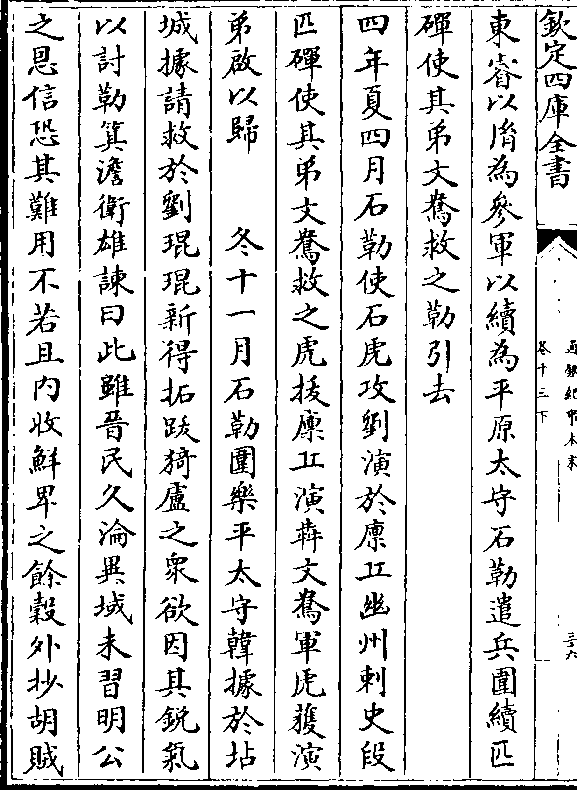 欽定四庫全書
通鑑紀事本末
卷十三下
三六
東睿以㥠為參軍以續為平原太守石勒遣兵圍續匹
磾使其弟文鴦救之勒引去
四年夏四月石勒使石虎攻劉演於廩丘幽州刺史段
匹磾使其弟文鴦救之虎拔廩丘演犇文鴦軍虎獲演
弟啟以歸　冬十一月石勒圍樂平太守韓據於坫
城據請救於劉琨琨新得拓跋猗盧之衆欲因其銳氣
以討勒箕澹衛雄諫曰此雖晉民久淪異域未習明公
之恩信恐其難用不若且内收鮮卑之餘穀外抄胡賊